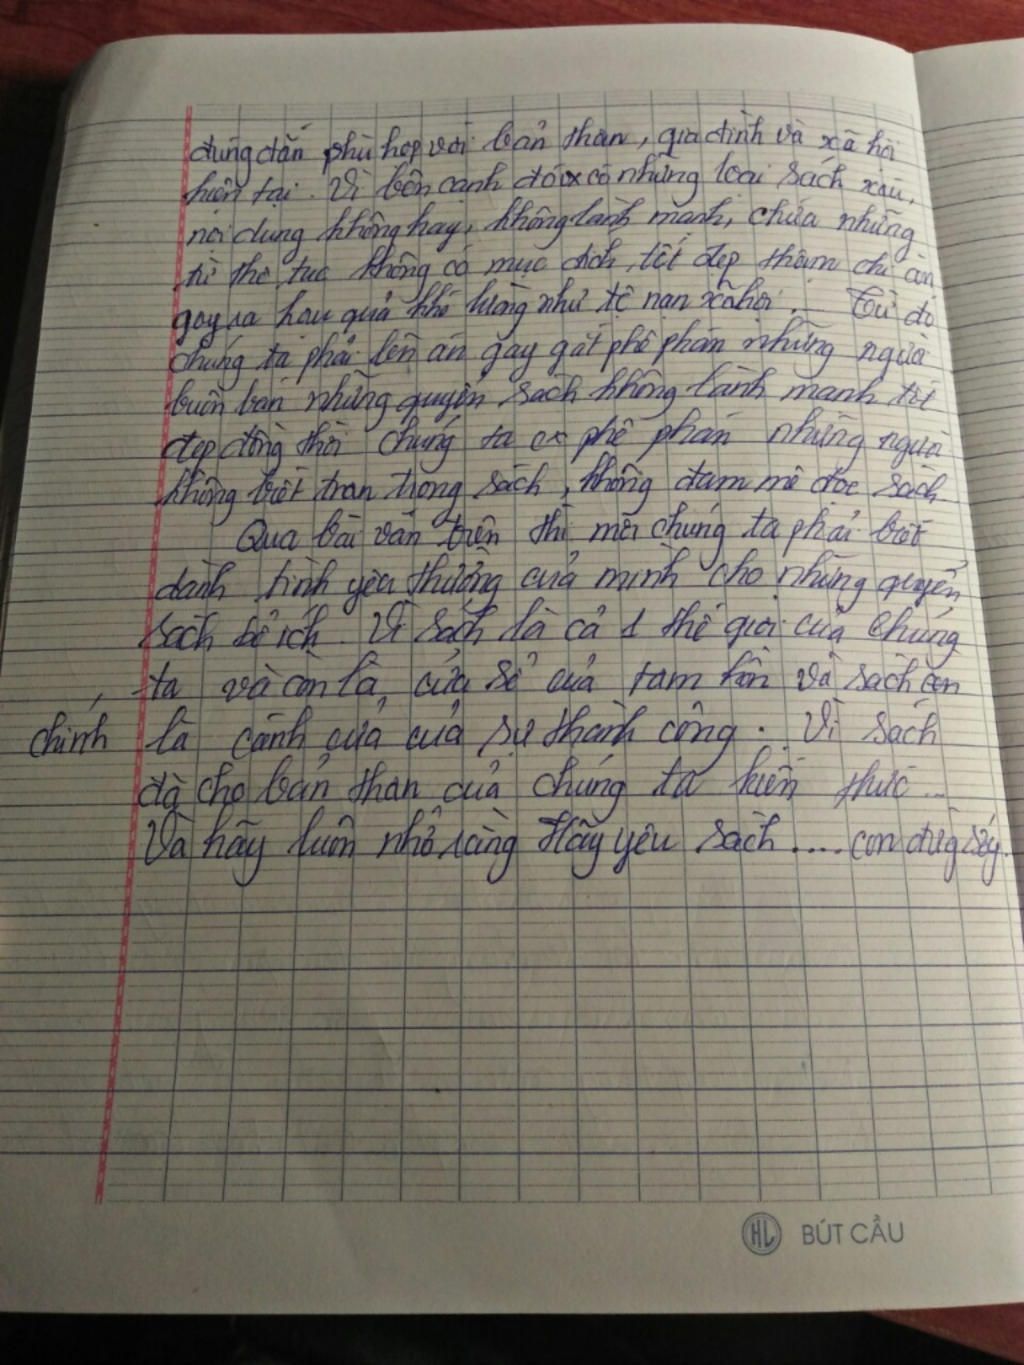 đúng đắn phù hợp với bản thân, gia đình và xã hội
hiện tại. Vì bên cạnh đó có những loại sách xấu,
nội dung không hay, không lành mạnh, chứa những
từ thô tục không có mục đích tốt đẹp thậm chí còn
gây ra hậu quả khó lường như tệ nạn xã hội. Từ đó
chúng ta phải lên án gay gắt phê phán những người
buôn bán những quyển sách không lành mạnh tốt
đẹp đồng thời chúng ta phê phán những người
không biết trân trọng sách, không đam mê đọc sách
Qua bài văn trên thì mỗi chúng ta phải biết
dành tình yêu thương của mình cho những quyển
sách bổ ích. Vì sách là cả 1 thế giới của chúng
ta và còn là cửa sổ của tâm hồn và sách còn
chính là cánh cửa của sự thành công. Vì sách
đã cho bản thân của chúng ta kiến thức...
Và hãy luôn nhớ rằng Hãy yêu sách .... con đường sống.
HL BÚT CẦU